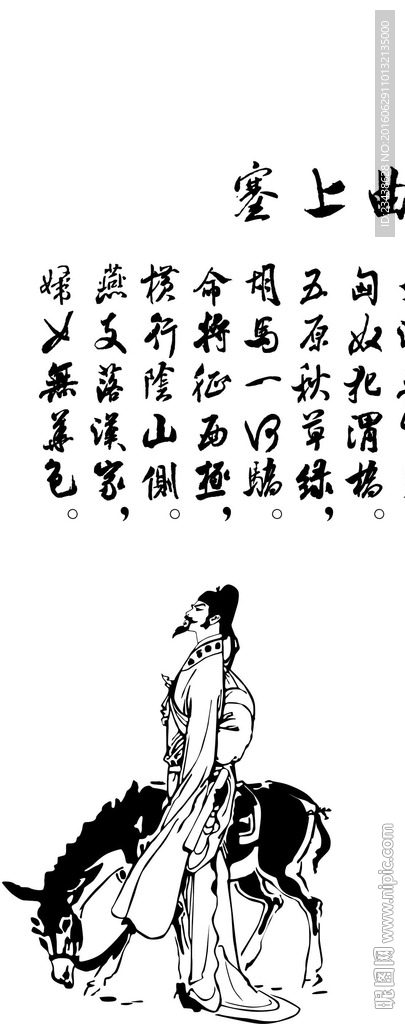 塞上曲
匈奴犯渭橋。
五原秋草綠,
胡馬一何驕。
命將征西極,
橫行陰山側。
燕支落漢家,
婦女無華色。
ID:23438628 NO:20160629110132135000
昵图网 www.nipic.com